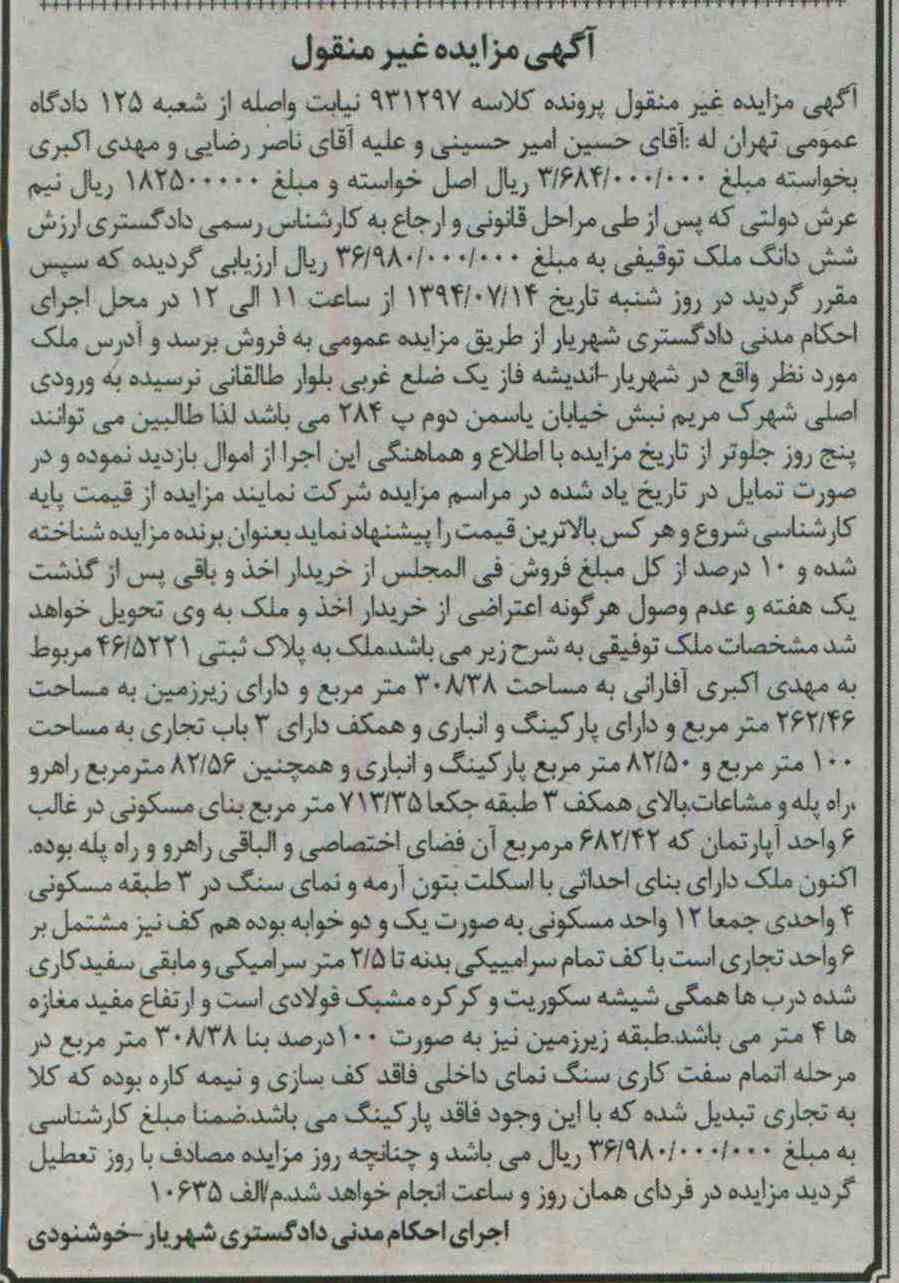 آگهی مزایده غیر منقول
آگهی مزایده غیر منقول پرونده کلاسه ۹۳۱۲۹۷ نیابت واصله از شعبه ۱۲۵ دادگاه
عمومی تهران له :آقای حسین امیر حسینی و علیه آقای ناصر رضایی و مهدی اکبری
بخواسته مبلغ ۳/۶۸۴/۰۰۰/۰۰۰ ریال اصل خواسته و مبلغ ۱۸۲۵۰۰۰۰۰ ریال نیم
عرش دولتی که پس از طی مراحل قانونی و ارجاع به کارشناس رسمی دادگستری ارزش
شش دانگ ملک توقیفی به مبلغ ۳۶/۹۸۰/۰۰۰/۰۰۰ ریال ارزیابی گردیده که سپس
مقرر گردید در روز شنبه تاریخ ۱۳۹۴/۰۷/۱۴ از ساعت ۱۱ الی ۱۲ در محل اجرای
احکام مدنی دادگستری شهریار از طریق مزایده عمومی به فروش برسد و آدرس ملک
مورد نظر واقع در شهریار-اندیشه فاز یک ضلع غربی بلوار طالقانی نرسیده به ورودی
اصلی شهرک مریم نبش خیابان یاسمن دوم پ ۲۸۴ می باشد لذا طالبین می توانند
پنج روز جلوتر از تاریخ مزایده با اطلاع و هماهنگی این اجرا از اموال بازدید نموده و در
صورت تمایل در تاریخ یاد شده در مراسم مزایده شرکت نمایند مزایده از قیمت پایه
کارشناسی شروع و هر کس بالاترین قیمت را پیشنهاد نماید بعنوان برنده مزایده شناخته
شده و ۱۰ درصد از کل مبلغ فروش فی المجلس از خریدار اخذ و باقی پس از گذشت
یک هفته و عدم وصول هرگونه اعتراضی از خریدار اخذ و ملک به وی تحویل خواهد
شد مشخصات ملک توفیقی به شرح زیر می باشد.ملک به پلاک ثبتی ۴۶/۵۲۲۱ مربوط
به مهدی اکبری آفارانی به مساحت ۳۰۸/۳۸ متر مربع و دارای زیرزمین به مساحت
۲۶۲/۴۶ متر مربع و دارای پارکینگ و انباری و همکف دارای ۳ باب تجاری به مساحت
۱۰۰ متر مربع و ۸۲/۵۰ متر مربع پارکینگ و انباری و همچنین ۸۲/۵۶ مترمربع راهرو
،راه پله و مشاعات.بالای همکف ۳ طبقه جکعا ۷۱۳/۳۵ متر مربع بنای مسکونی در غالب
۶ واحد آپارتمان که ۶۸۲/۴۲ مرمربع آن فضای اختصاصی و الباقی راهرو و راه پله بوده.
اکنون ملک دارای بنای احداثی با اسکلت بتون آرمه و نمای سنگ در ۳ طبقه مسکونی
۴ واحدی جمعا ۱۲ واحد مسکونی به صورت یک و دو خوابه بوده هم کف نیز مشتمل بر
۶ واحد تجاری است با کف تمام سرامییکی بدنه تا ۲/۵ متر سرامیکی و مابقی سفیدکاری
شده درب ها همگی شیشه سکوریت و کرکره مشبک فولادی است و ارتفاع مفید مغازه
ها ۴ متر می باشد.طبقه زیرزمین نیز به صورت ۱۰۰درصد بنا ۳۰۸/۳۸ متر مربع در
مرحله اتمام سفت کاری سنگ نمای داخلی فاقد کف سازی و نیمه کاره بوده که کلا
به تجاری تبدیل شده که با این وجود فاقد پارکینگ می باشد.ضمنا مبلغ کارشناسی
به مبلغ ۳۶/۹۸۰/۰۰۰/۰۰۰ ریال می باشد و چنانچه روز مزایده مصادف با روز تعطیل
گردید مزایده در فردای همان روز و ساعت انجام خواهد شد.م/الف ۱۰۶۳۵
اجرای احکام مدنی دادگستری شهریار-خوشنودی